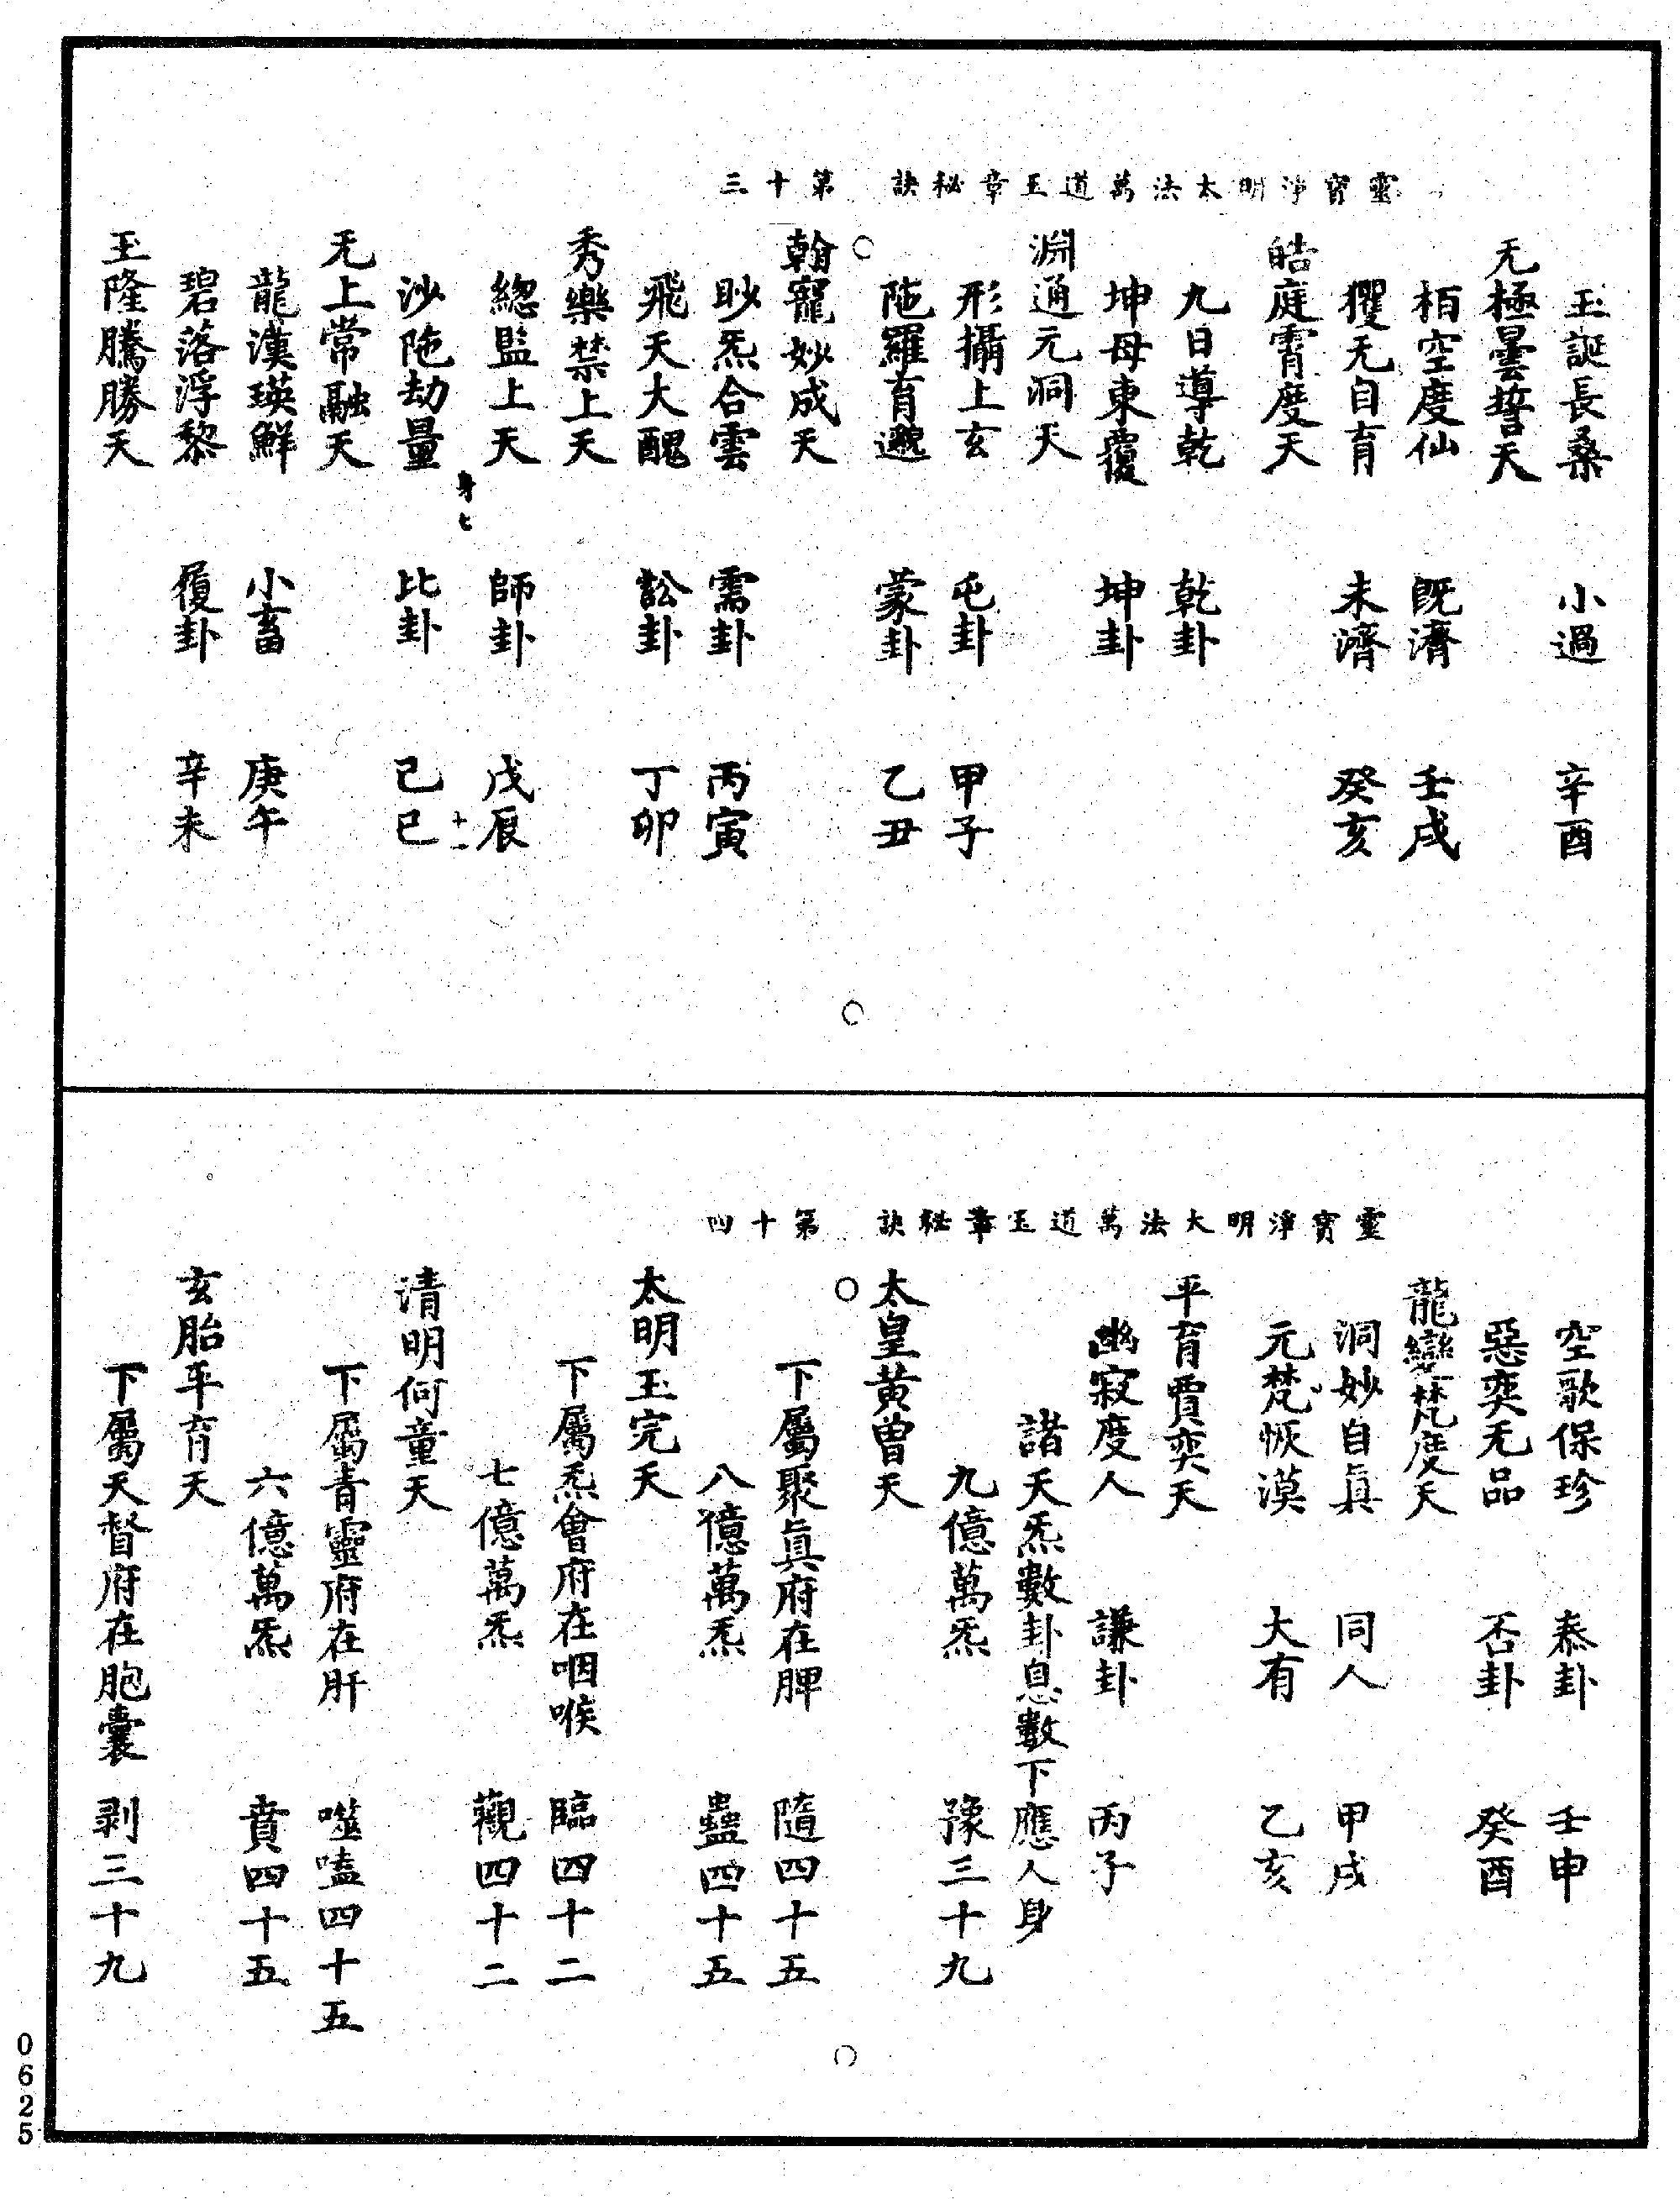 靈寶淨明大法萬道玉章秘訣　第十三
玉誕長桑　小過　辛酉
无極曇誓天
栢空度仙　旣濟　壬戌
玃无自育　未濟　癸亥
皓庭霄度天
九日導乾　乾卦
坤母東覆　坤卦
淵通元洞天
形攝上玄　屯卦　甲子
陁羅育邈　蒙卦　乙丑
翰寵妙成天
眇炁合雲　需卦　丙寅
飛天大醜　訟卦　丁卯
秀樂禁上天
緫監上天　師卦　戊辰
身七　十一
沙陁劫量　比卦　己巳
无上常融天
龍漢瑛鮮　小畜　庚午
碧落浮黎　履卦　辛未
玉隆騰勝天
靈寶淨明大法萬道玉章秘訣　第十四
空歌保珍　泰卦　壬申
惡奕无品　否卦　癸酉
龍變梵度天
洞妙自眞　同人　甲戌
元梵恢漠　大有　乙亥
平育賈奕天
幽寂度人　謙卦　丙子
諸天炁數卦息數下應人身
九億萬炁　豫三十九
太皇黃曾天
下屬聚眞府在脾　隨四十五
八億萬炁　蠱四十五
太明玉完天
下屬炁會府在咽喉　臨四十二
七億萬炁　觀四十二
清明何童天
下屬青靈府在肝　噬嗑四十五
六億萬炁　賁四十五
玄胎平育天
下屬天督府在胞囊　剥三十九
0625